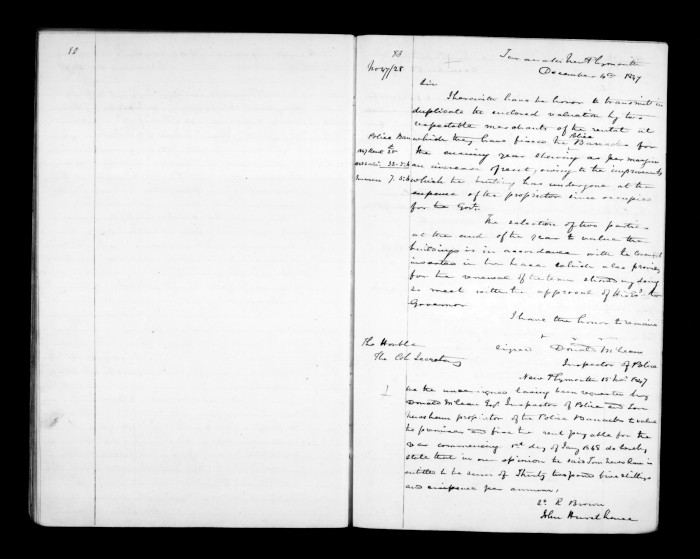 83
83
No 47/28
Taranaki New Plymouth
December 4th 1847
Sir
I herewith have the honor to transmit in
duplicate the enclosed valuation by two
respectable merchants of the rental at
Police Barr which they have fixed the Police Barracks for
the ensuing year showing as per margin
an increase of rent, owing to the improvements
which the building has undergone at the
expense of the proprietor since occupied
for the Govt.
The selection of two parties
at the end of the year to value the
buildings is in accordance with the covenant
inserted in the lease which also provides
for the renewal of the term should my doing
so meet with the approval of His Exy the
Governor
I have the honor to remain
The Honble
The Col Secretary
signed Donald McLean
Inspector of Police
New Plymouth 15 Nov 1847
We the undersigned having been requested by
Donald McLean Esq Inspector of Police and
proprietor of the Police Barracks to value
the premises and fix the rent payable for the
year commencing 1st day of Jany 1848 do hereby
state that in our opinion the said is
entitled to the sum of Thirty two pounds five shillings
and sixpence per annum.
R Brown
John Hursthouse